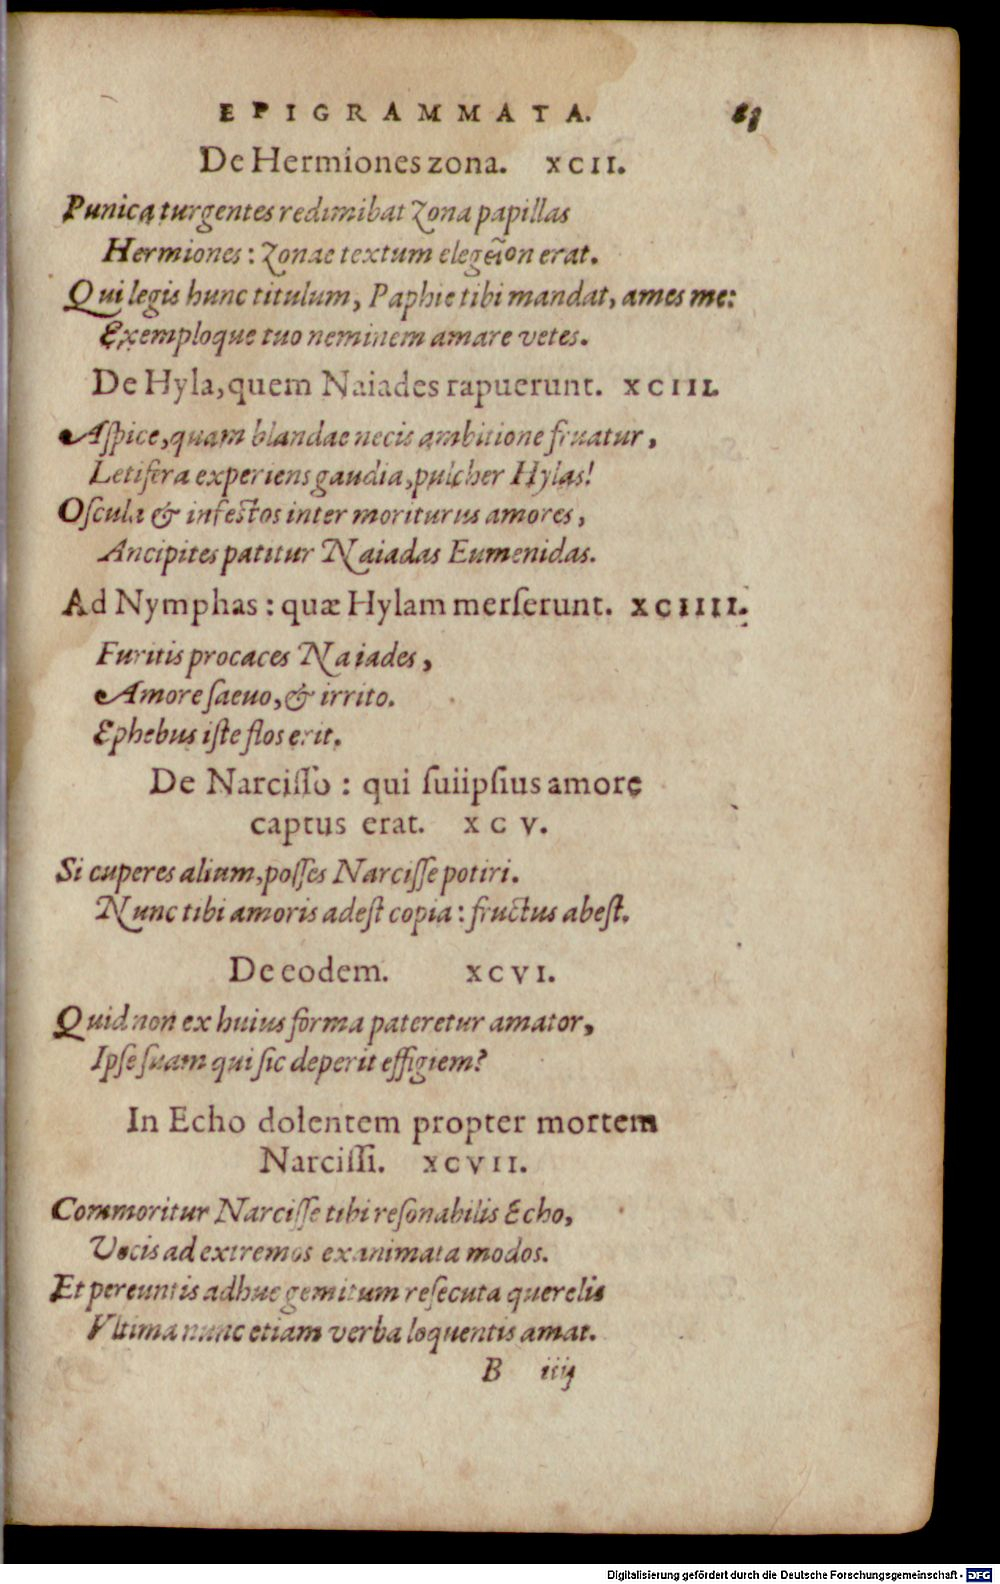 EPIGRAMMATA.
De Hermiones zona. XCII.
Punica turgentes redimibat zona papillas
Hermiones: zonae textum elegeῖon erat.
Qui legis hunc titulum, Paphie tibi mandat, ames me:
Exemploque tuo neminem amare vetes.
De Hyla, quem Naiades rapuerunt. XCIII.
Aſpice, quam blandae necis ambitione fruatur,
Letifera experiens gaudia, pulcher Hylas!
Oſcula & infeſtos inter moriturus amores,
Ancipites patitur Naiadas Eumenidas.
Ad Nymphas: quæ Hylam merſerunt. XCIIII.
Furitis procaces Naiades,
Amore ſaevo, & irrito.
Ephebus iſte flos erit.
De Narciſſo: qui ſuiipſius amore
captus erat. XCV.
Si cuperes alium, poſſes Narciſſe potiri.
Nunc tibi amoris adeſt copia: fructus abeſt.
De eodem. XCVI.
Quid non ex huius forma pateretur amator,
Ipſe ſuam qui ſic deperit effigiem?
In Echo dolentem propter mortem
Narciſſi. XCVII.
Commoritur Narciſſe tibi reſonabilis Echo,
Vocis ad extremos exanimata modos.
Et pereuntis adhuc gemitum reſecuta querelis
Vltima nunc etiam verba loquentis amat.
B iiij
Digitalisierung gefördert durch die Deutsche Forschungsgemeinschaft - DFG